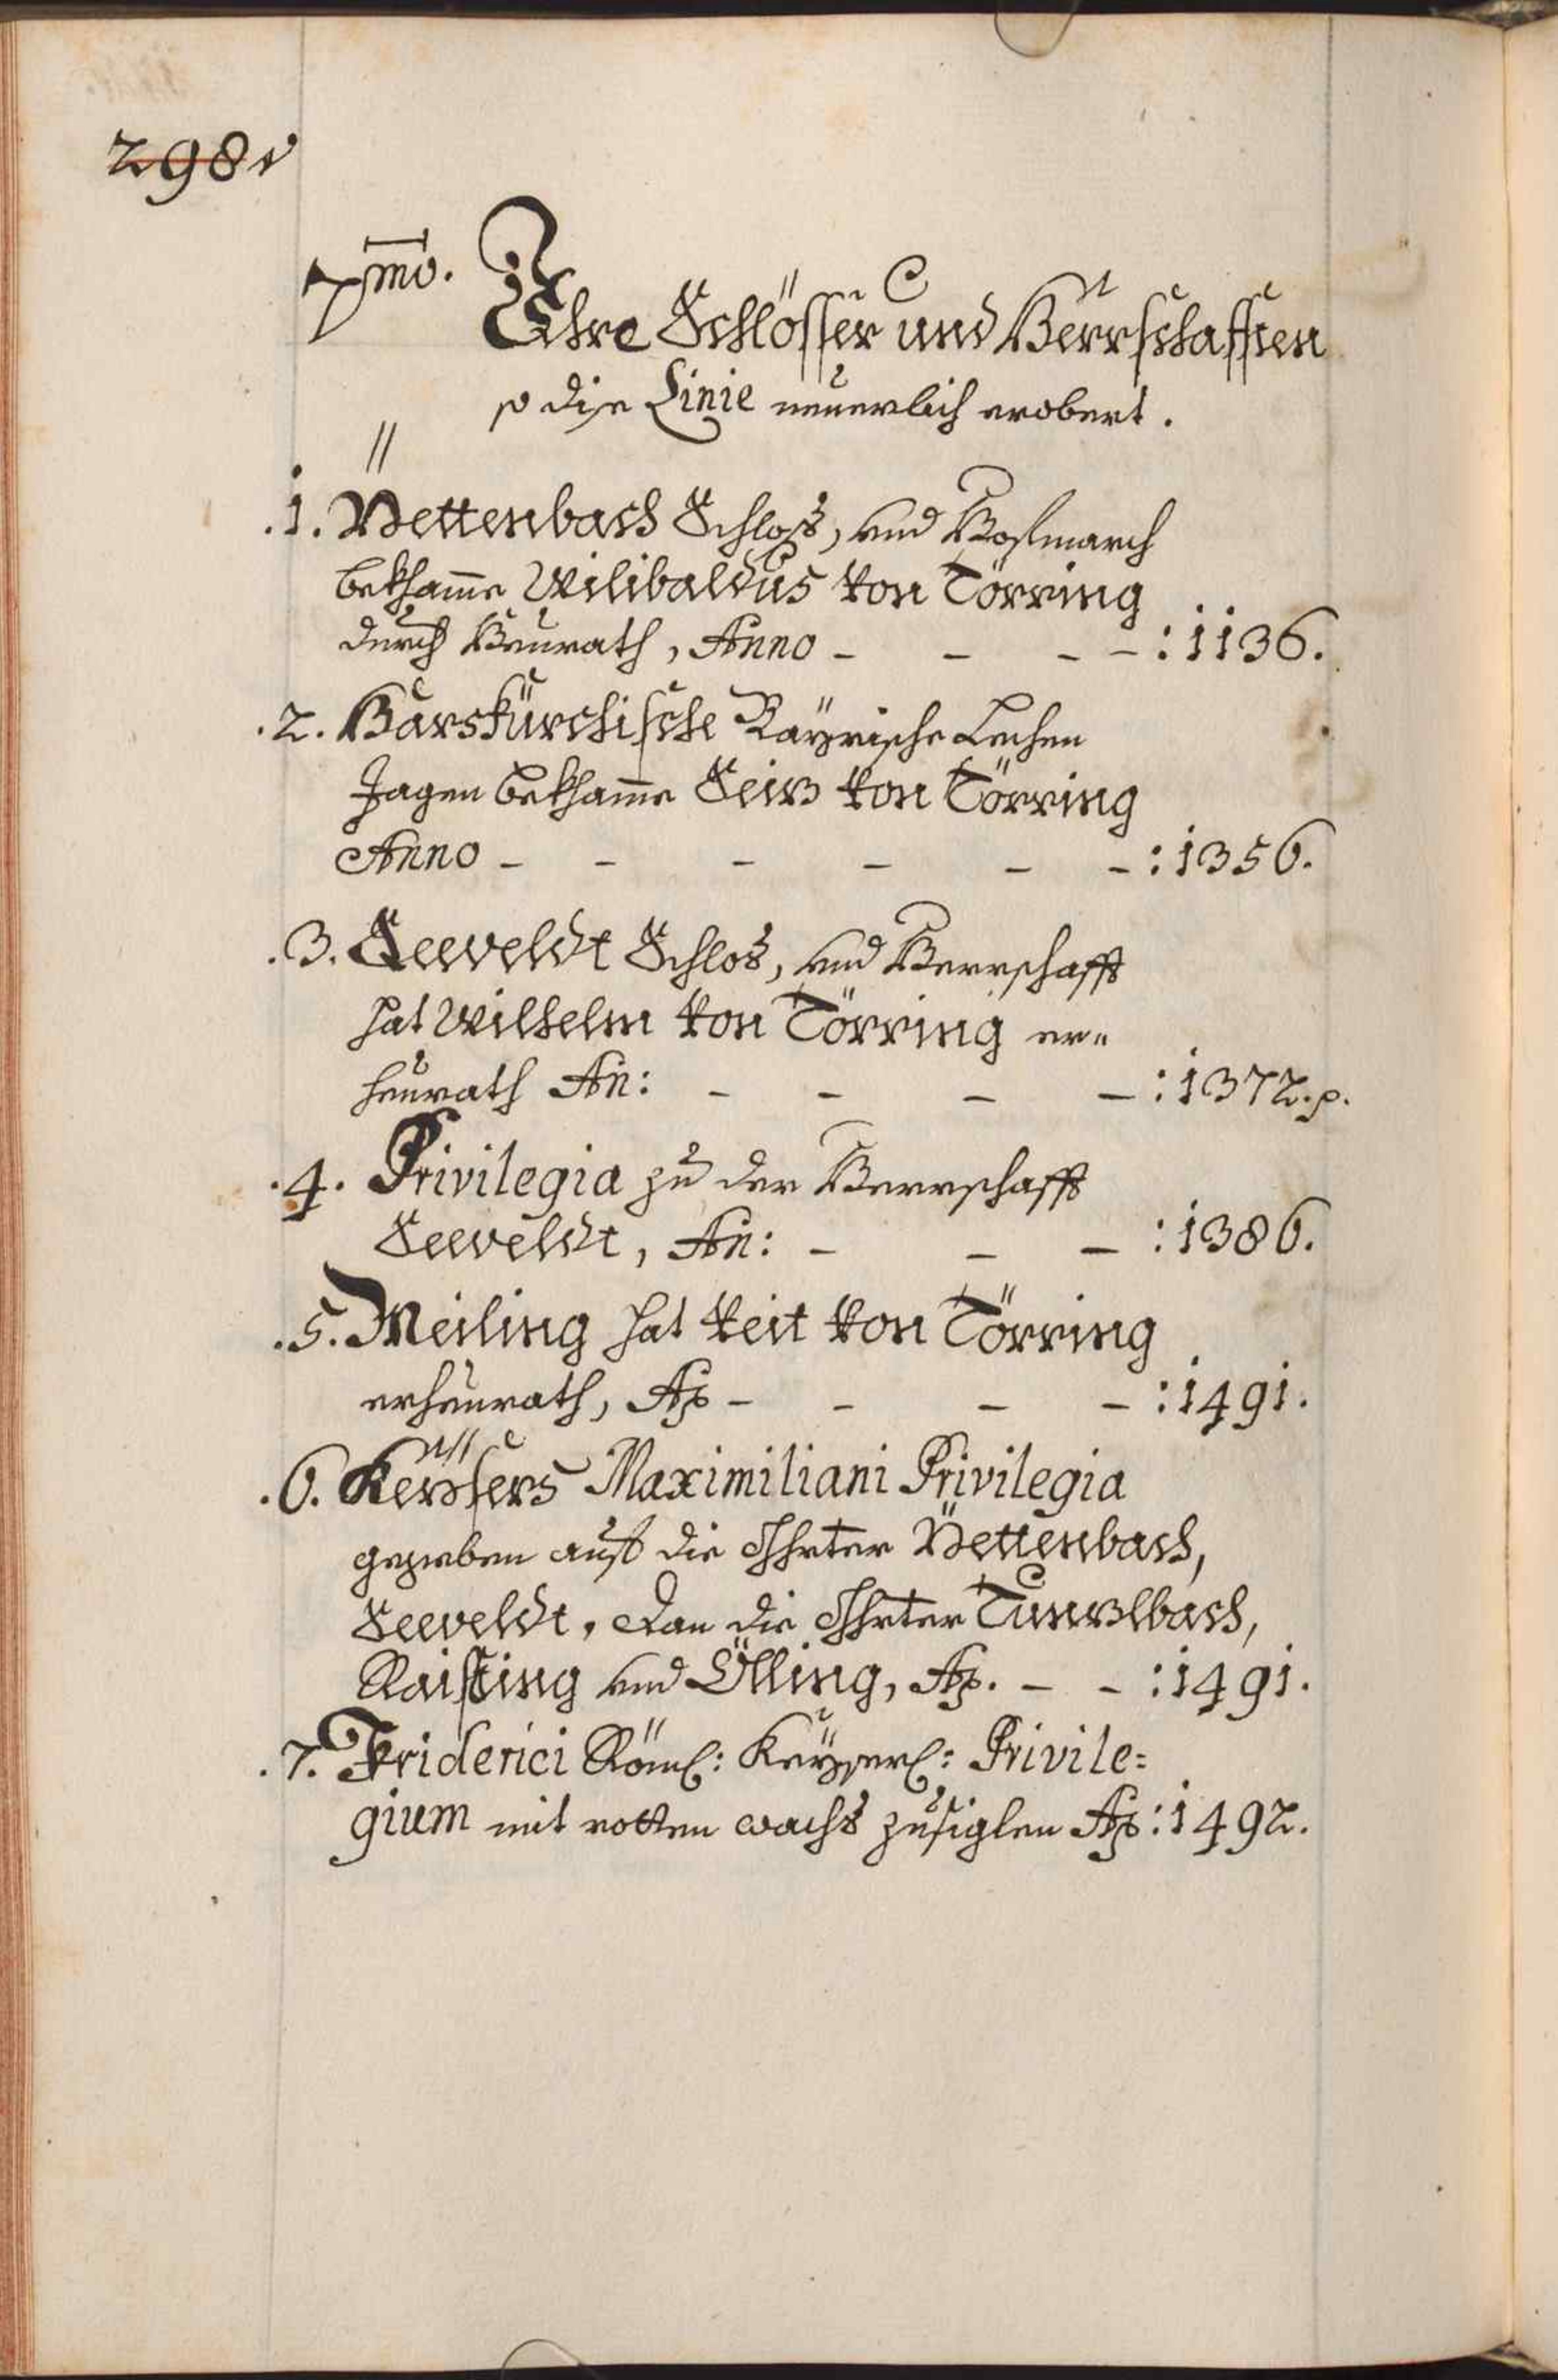 298v
7mo.
Ihre Schlösser und Herrschafften
so dise Linie neuerlich erobert.
.1. Jettenbach Schloss, und Hofmarch
bekhame Wilibaldus von Törring
durch Heurath, Anno - - - - : 1136.
.2. Bayrische Lechen
Jagen bekhame Seiz von Törring
Anno - - - - - - : 1356.
.3. Seeveldt Schlos, und Herrschafft
hat Wilhelm von Törring er=
heurath An: - - - - : 1372. p.
.4. Privilegia zu der Herrschafft
Seeveldt, An: - - - : 1386.
.5. Meiling hat Veit von Törring
erheurath, Ao - - - - : 1491.
.6. Keysers Maximiliani Privilegia
gegeben auf die Öhrter Jettenbach,
Seeveldt, Dan die Öhrter Tunzlbach,
Raisting und Ölling, Ao. - - : 1491.
.7. Friderici Röml: Keyserl: Privile=
gium mit rotten wachs zusiglen Ao : 1492.